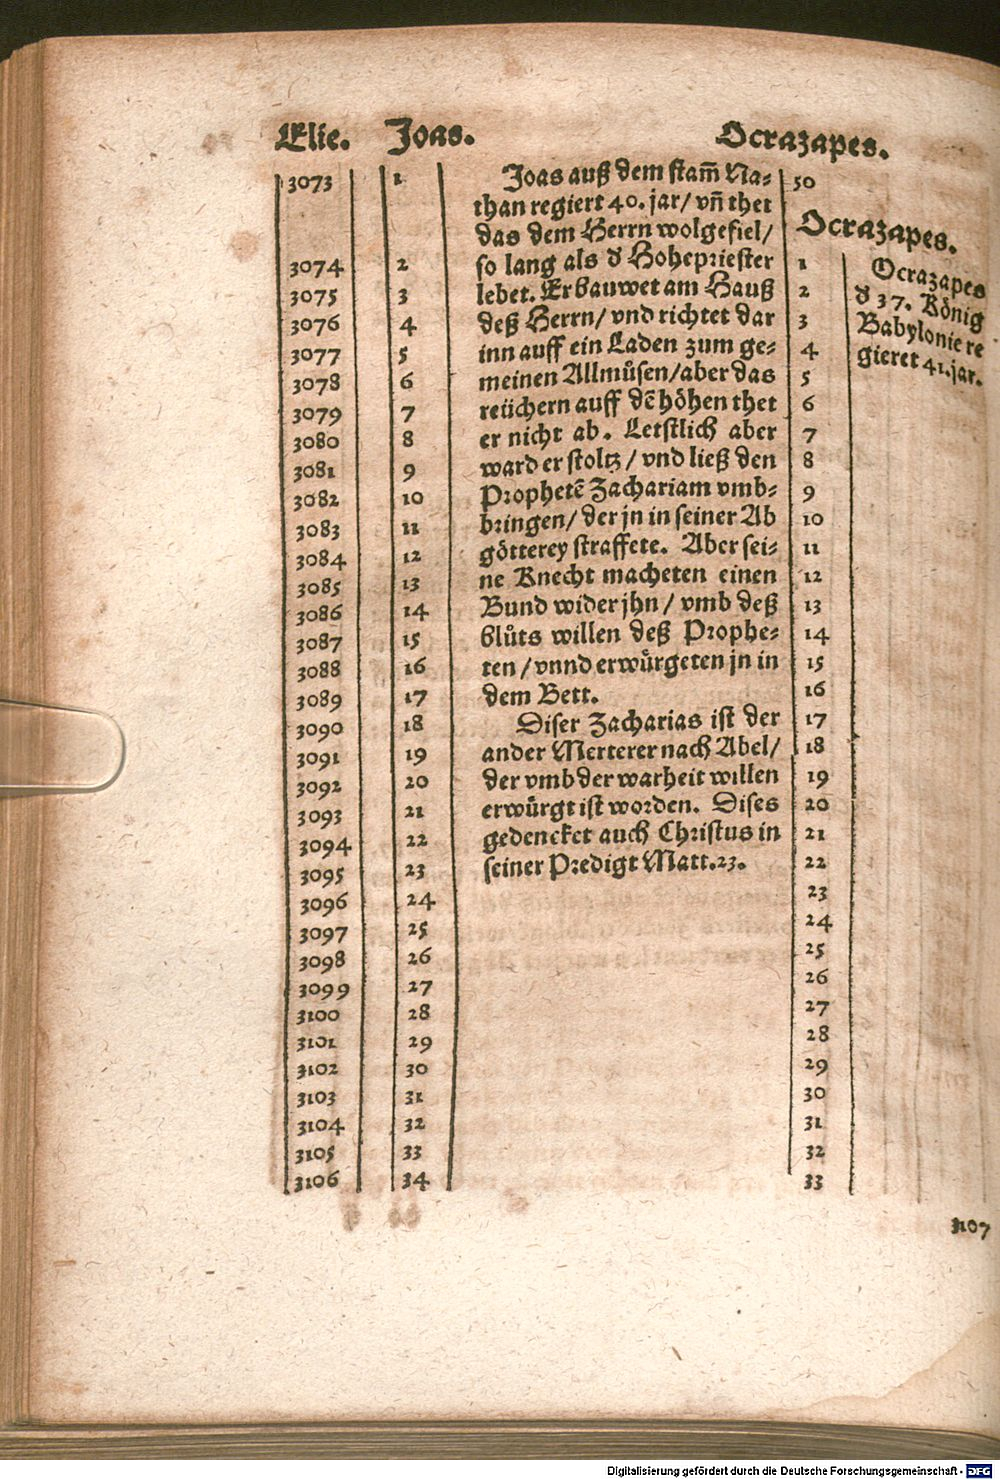 Elie. Joas. Ocrazapes.
3073 1 Joas auß dem stam̃ Na⸗ 50
than regiert 40. jar/ vñ thet
das dem Herrn wolgefiel/ Ocrazapes.
3074 2 so lang als d Hohepriester 1 Ocrazapes
3075 3 lebet. Er bauwet am Hauß 2 d 37. König
3076 4 deß Herrn/ vnd richtet dar 3 Babylonie re
3077 5 inn auff ein Laden zum ge⸗ 4 gieret 41. jar.
3078 6 meinen Allmůsen/ aber das 5
3079 7 reüchern auff dẽ höhen thet 6
3080 8 er nicht ab. Letstlich aber 7
3081 9 ward er stoltz/ vnd ließ den 8
3082 10 Prophetẽ Zachariam vmb⸗ 9
3083 11 bringen/ der jn in seiner Ab 10
3084 12 götterey straffete. Aber sei⸗ 11
3085 13 ne Knecht macheten einen 12
3086 14 Bund wider jhn/ vmb deß 13
3087 15 blůts willen deß Prophe⸗ 14
3088 16 ten/ vnnd erwürgeten jn in 15
3089 17 dem Bett. 16
3090 18 Diser Zacharias ist der 17
3091 19 ander Merterer nach Abel/ 18
3092 20 der vmb der warheit willen 19
3093 21 erwürgt ist worden. Dises 20
3094 22 gedencket auch Christus in 21
3095 23 seiner Predigt Matt. 23. 22
3096 24 23
3097 25 24
3098 26 25
3099 27 26
3100 28 27
3101 29 28
3102 30 29
3103 31 30
3104 32 31
3105 33 32
3106 34 33
3107
Digitalisierung gefördert durch die Deutsche Forschungsgemeinschaft - DFG